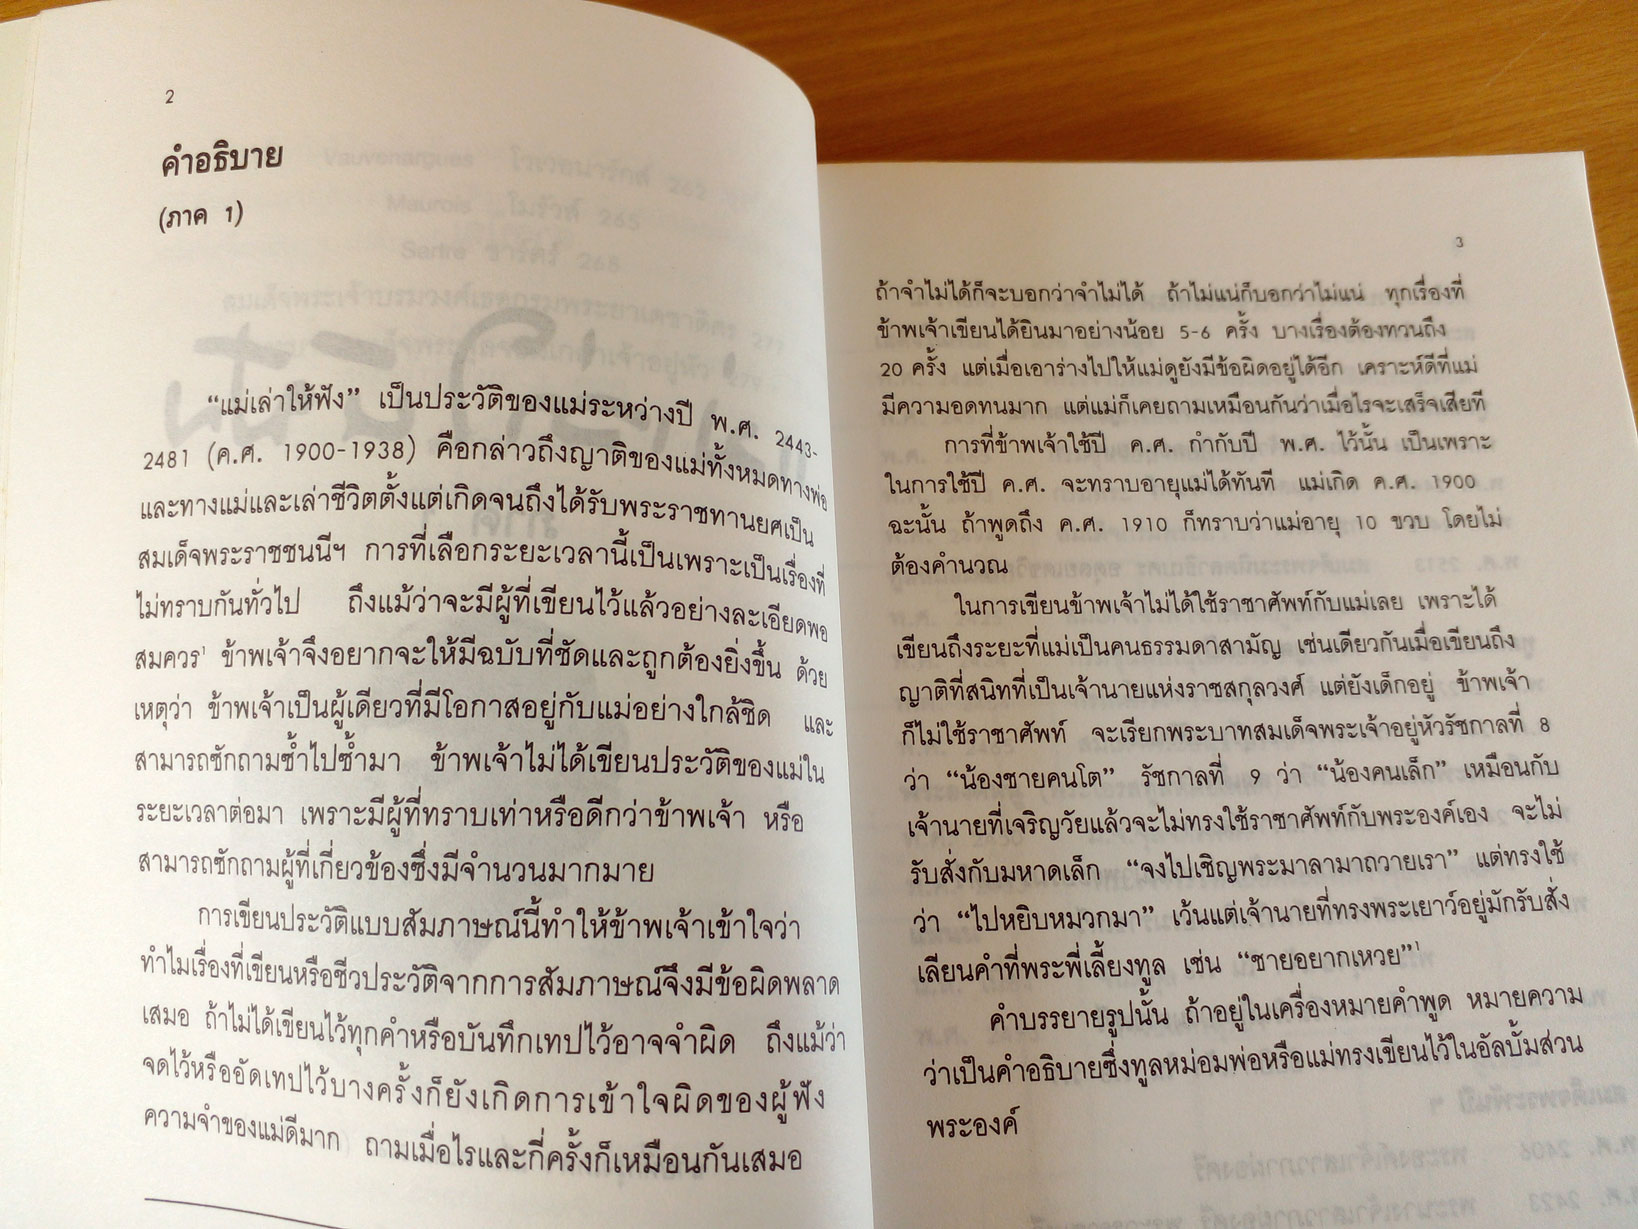 2
คำอธิบาย
(ภาค 1)
“แม่เล่าให้ฟัง” เป็นประวัติของแม่ระหว่างปี พ.ศ. 2443-
2481 (ค.ศ. 1900-1938) คือกล่าวถึงญาติของแม่ทั้งหมดทางพ่อ
และทางแม่และเล่าชีวิตตั้งแต่เกิดจนถึงได้รับพระราชทานยศเป็น
สมเด็จพระราชชนนีฯ การที่เลือกระยะเวลานี้เป็นเพราะเป็นเรื่องที่
ไม่ทราบกันทั่วไป ถึงแม้ว่าจะมีผู้ที่เขียนไว้แล้วอย่างละเอียดพอ
สมควร¹ ข้าพเจ้าจึงอยากจะให้มีฉบับที่ชัดและถูกต้องยิ่งขึ้น ด้วย
เหตุว่า ข้าพเจ้าเป็นผู้เดียวที่มีโอกาสอยู่กับแม่อย่างใกล้ชิด และ
สามารถซักถามซ้ำไปซ้ำมา ข้าพเจ้าไม่ได้เขียนประวัติของแม่ใน
ระยะเวลาต่อมา เพราะมีผู้ที่ทราบเท่าหรือดีกว่าข้าพเจ้า หรือ
สามารถซักถามผู้ที่เกี่ยวข้องซึ่งมีจำนวนมากมาย
การเขียนประวัติแบบสัมภาษณ์นี้ทำให้ข้าพเจ้าเข้าใจว่า
ทำไมเรื่องที่เขียนหรือชีวประวัติจากการสัมภาษณ์จึงมีข้อผิดพลาด
เสมอ ถ้าไม่ได้เขียนไว้ทุกคำหรือบันทึกเทปไว้อาจจำผิด ถึงแม้ว่า
จดไว้หรืออัดเทปไว้บางครั้งก็ยังเกิดการเข้าใจผิดของผู้ฟัง
ความจำของแม่ดีมาก ถามเมื่อไรและกี่ครั้งก็เหมือนกันเสมอ
3
ถ้าจำไม่ได้ก็จะบอกว่าจำไม่ได้ ถ้าไม่แน่ก็บอกว่าไม่แน่ ทุกเรื่องที่
ข้าพเจ้าเขียนได้ยินมาอย่างน้อย 5-6 ครั้ง บางเรื่องต้องทวนถึง
20 ครั้ง แต่เมื่อเอาร่างไปให้แม่ดูยังมีข้อผิดอยู่ได้อีก เคราะห์ดีที่แม่
มีความอดทนมาก แต่แม่ก็เคยถามเหมือนกันว่าเมื่อไรจะเสร็จเสียที
การที่ข้าพเจ้าใช้ปี ค.ศ. กำกับปี พ.ศ. ไว้นั้น เป็นเพราะ
ในการใช้ปี ค.ศ. จะทราบอายุแม่ได้ทันที แม่เกิด ค.ศ. 1900
ฉะนั้น ถ้าพูดถึง ค.ศ. 1910 ก็ทราบว่าแม่อายุ 10 ขวบ โดยไม่
ต้องคำนวณ
ในการเขียนข้าพเจ้าไม่ได้ใช้ราชาศัพท์กับแม่เลย เพราะได้
เขียนถึงระยะที่แม่เป็นคนธรรมดาสามัญ เช่นเดียวกันเมื่อเขียนถึง
ญาติที่สนิทที่เป็นเจ้านายแห่งราชสกุลวงศ์ แต่ยังเด็กอยู่ ข้าพเจ้า
ก็ไม่ใช้ราชาศัพท์ จะเรียกพระบาทสมเด็จพระเจ้าอยู่หัวรัชกาลที่ 8
ว่า “น้องชายคนโต” รัชกาลที่ 9 ว่า “น้องคนเล็ก” เหมือนกับ
เจ้านายที่เจริญวัยแล้วจะไม่ทรงใช้ราชาศัพท์กับพระองค์เอง จะไม่
รับสั่งกับมหาดเล็ก “จงไปเชิญพระมาลามาถวายเรา” แต่ทรงใช้
ว่า “ไปหยิบหมวกมา” เว้นแต่เจ้านายที่ทรงพระเยาว์อยู่มักรับสั่ง
เลียนคำที่พระพี่เลี้ยงทูล เช่น “ชายอยากเหวย”¹
คำบรรยายรูปนั้น ถ้าอยู่ในเครื่องหมายคำพูด หมายความ
ว่าเป็นคำอธิบายซึ่งทูลหม่อมพ่อหรือแม่ทรงเขียนไว้ในอัลบั้มส่วน
พระองค์